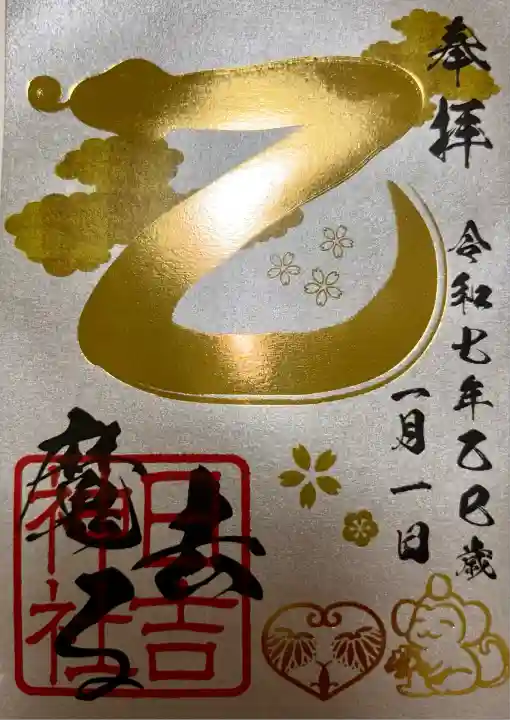 奉拝
令和七年乙巳歳
一月一日
乙
魔去る
日吉
神社